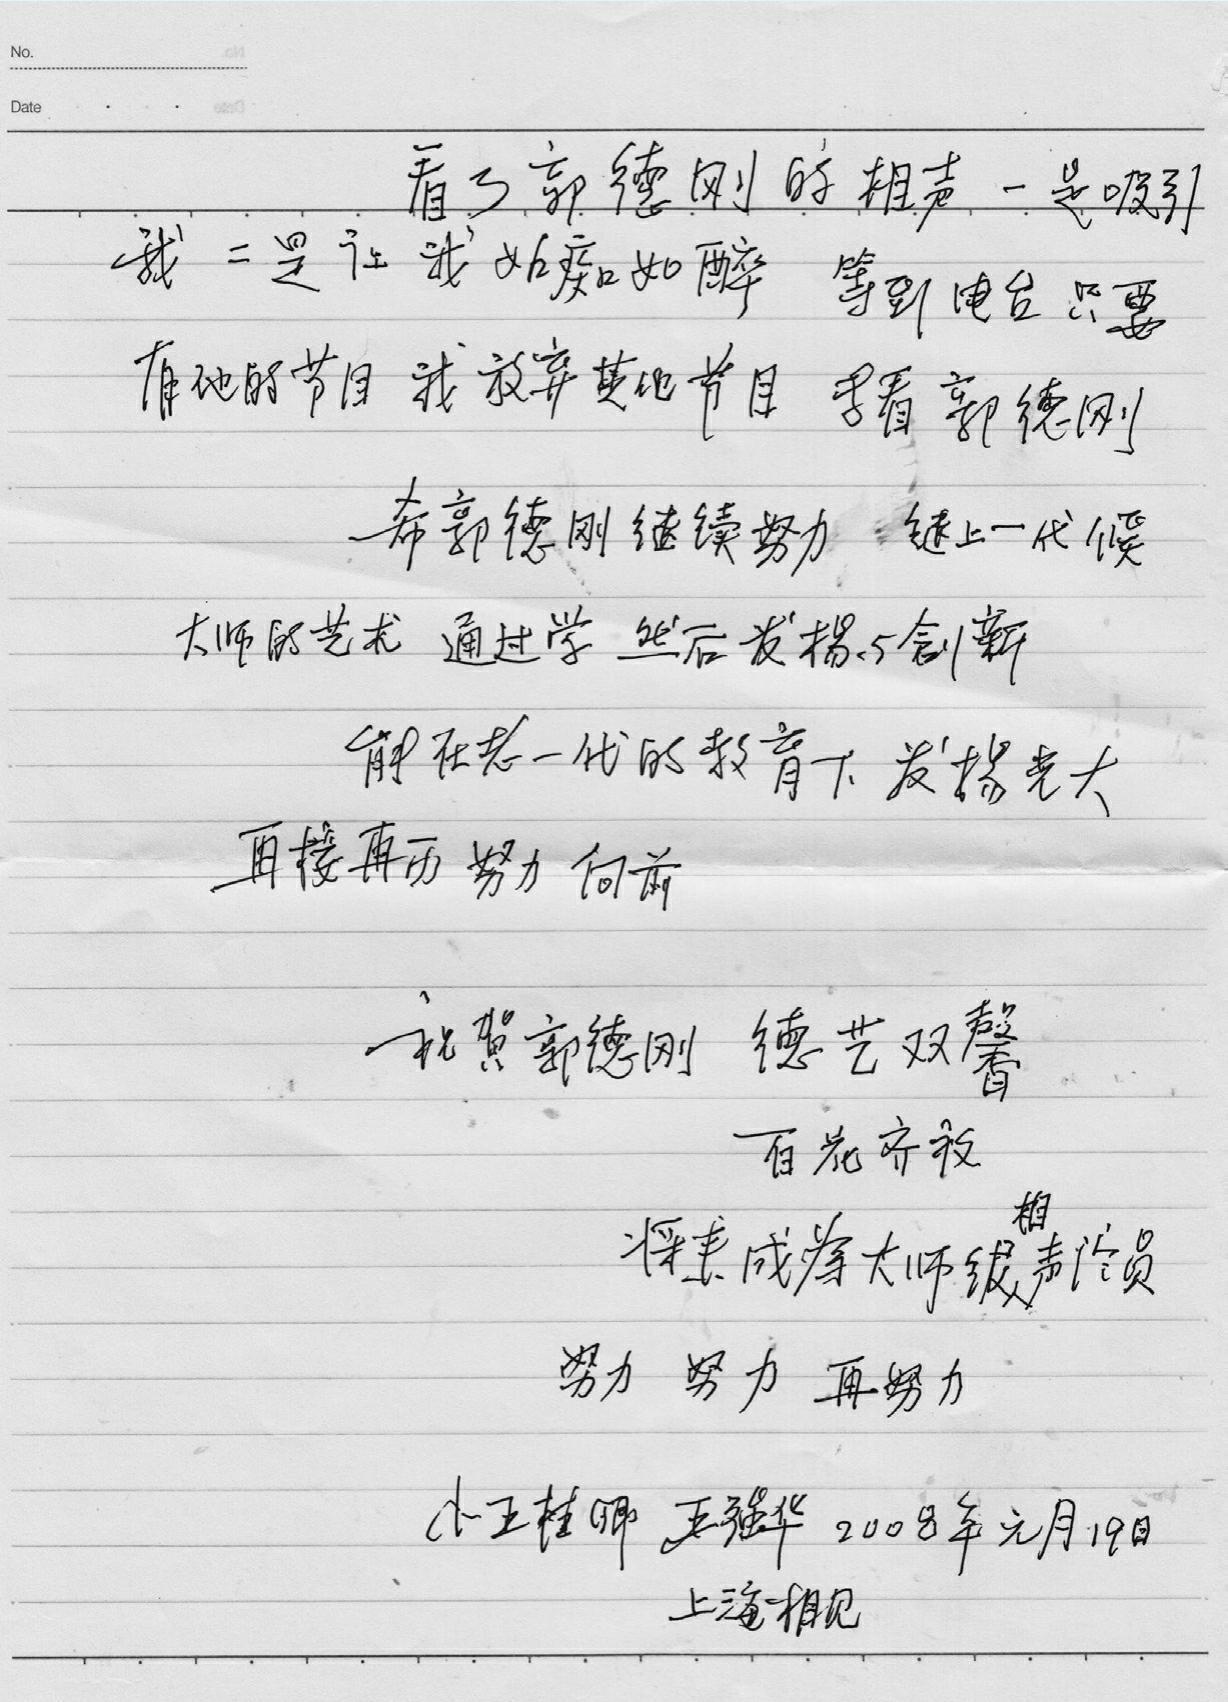 No.
Date
看了郭德刚的相声 一是吸引
我 二是让我如痴如醉 等到电台只要
有他的节目 我放弃其他节目 看郭德刚
希郭德刚继续努力 继上一代侯
大师的艺术 通过学 然后发扬与创新
能在老一代的教育下 发扬光大
再接再历 努力向前
祝贺郭德刚 德艺双馨
百花齐放
将来成为大师级相声演员
努力 努力 再努力
小王桂卿 王强华 2008年元月19日
上海相见